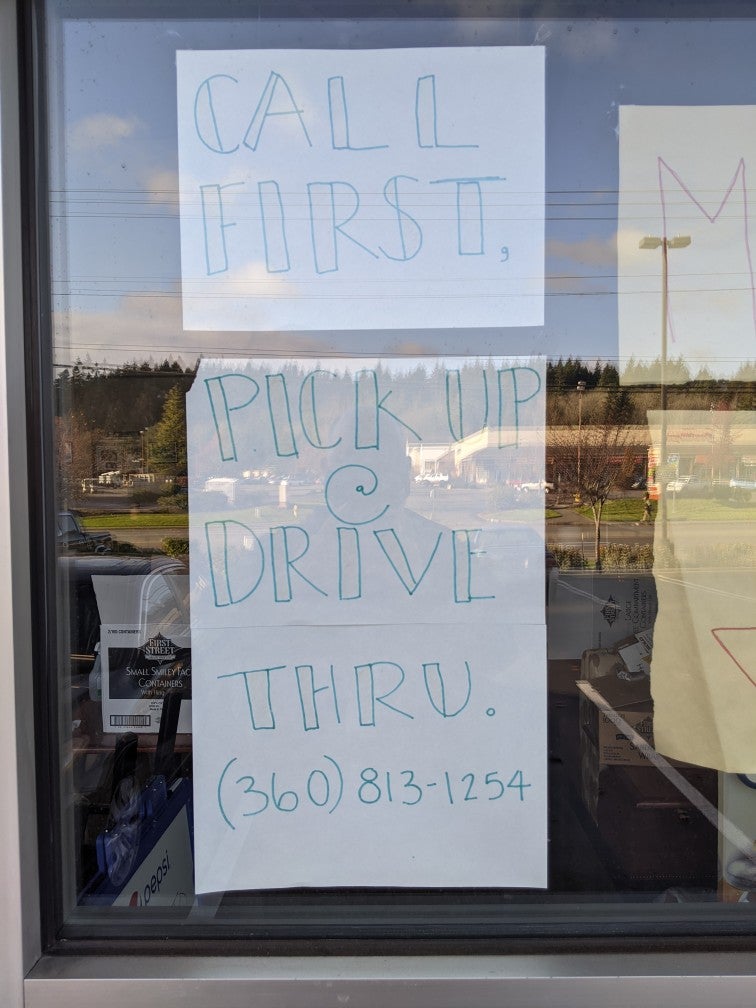 CALL
FIRST,
PICK UP
@
DRIVE
THRU.
(360) 813-1254
M
FIRST
STREET
SMALL SMILEY FAC
CONTAINERS
pepsi